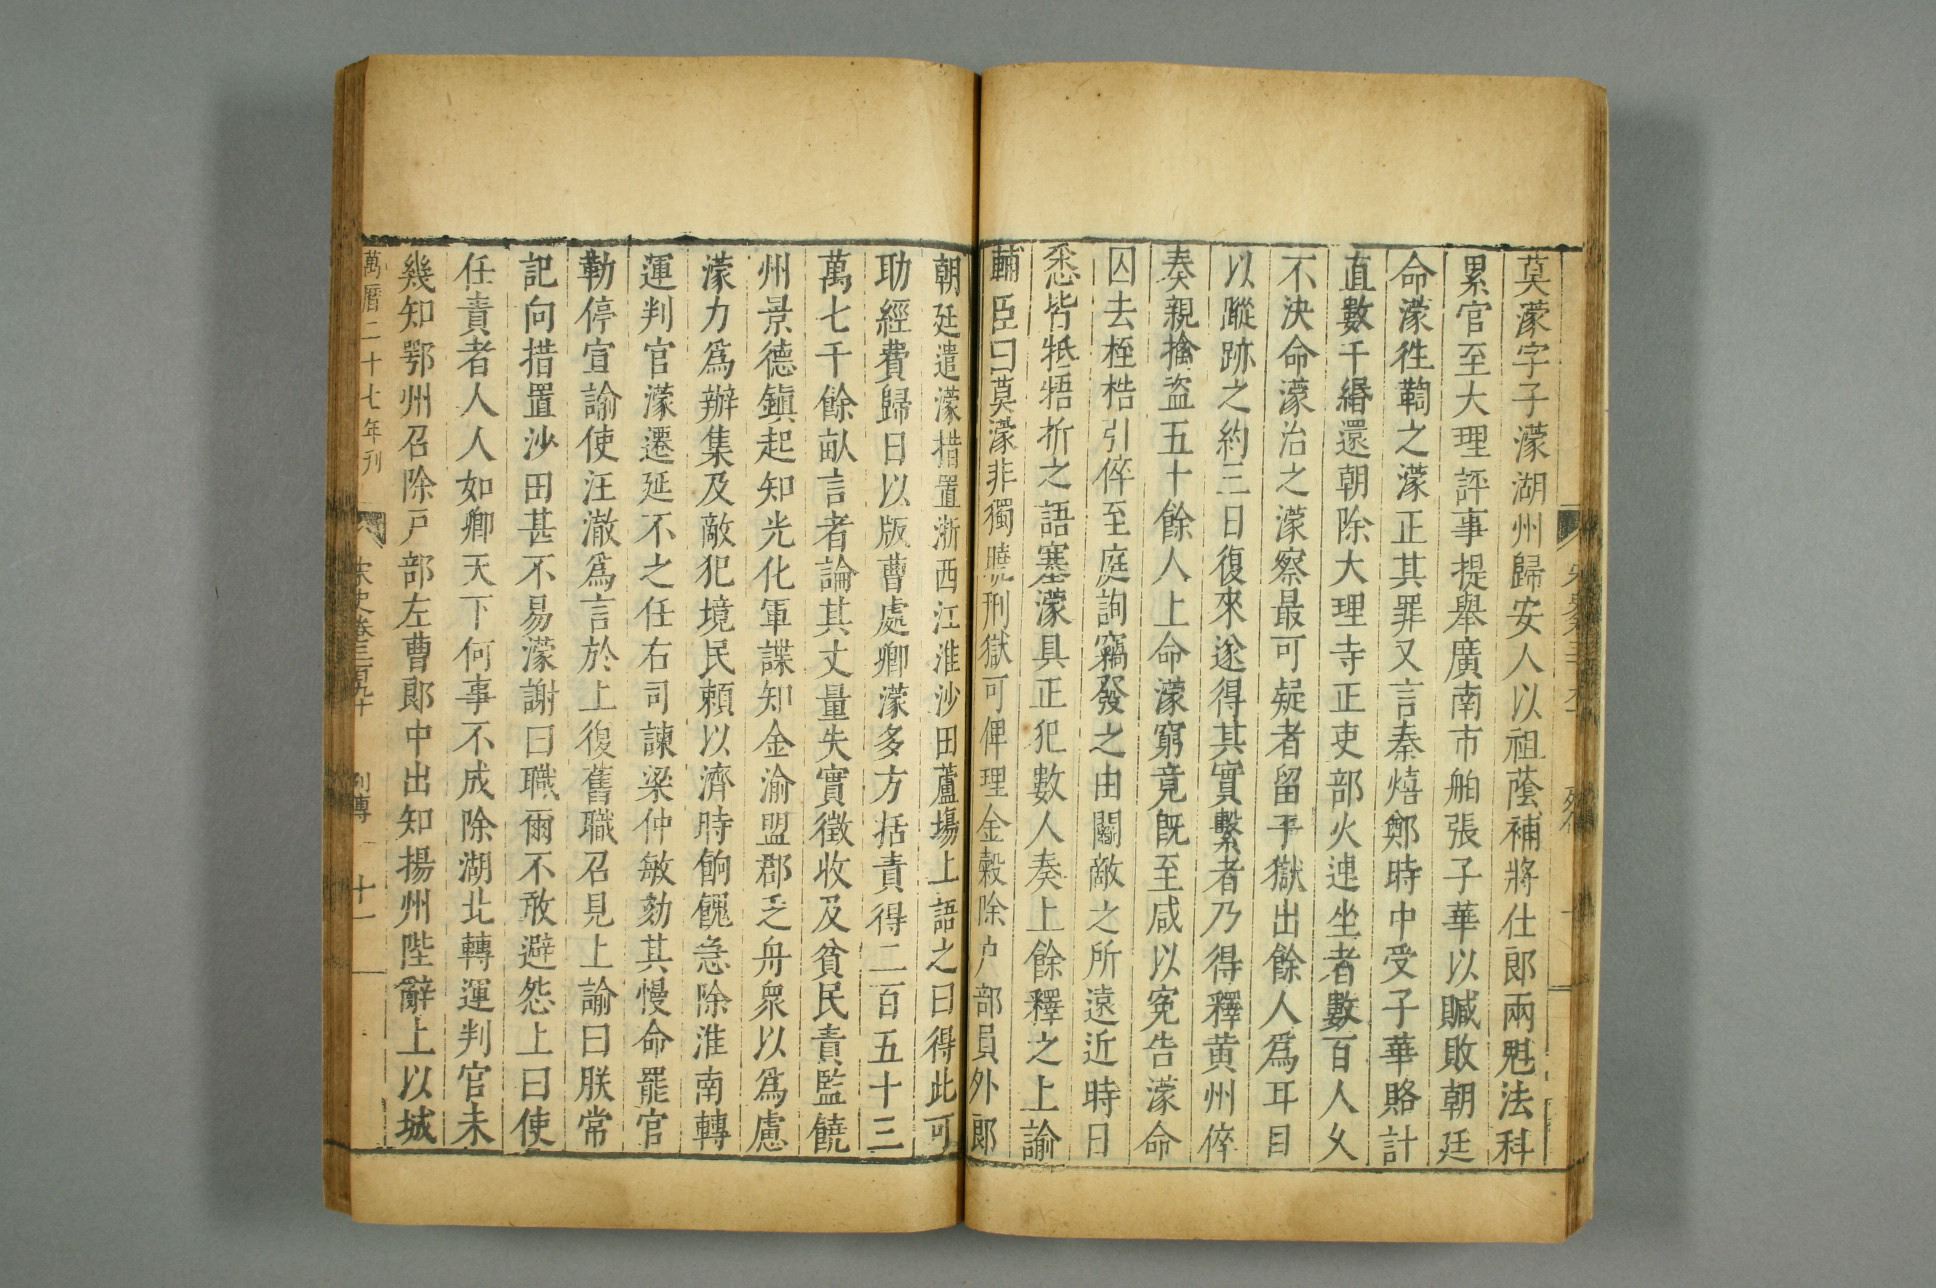 莫濛字子濛湖州歸安人以祖蔭補將仕郎兩魁法科
累官至大理評事提舉廣南市舶張子華以贓敗朝廷
命濛徃鞫之濛正其罪又言秦熺鄭時中受子華賂計
直數千緡還朝除大理寺正吏部火連坐者數百人久
不決命濛治之濛察最可疑者留于獄出餘人爲耳目
以蹤跡之約三日復來遂得其實繫者乃得釋黄州倅
奏親擒盜五十餘人上命濛窮竟旣至咸以寃告濛命
囚去桎梏引倅至庭詢竊發之由鬬敵之所遠近時日
悉皆牴牾折之語塞濛具正犯數人奏上餘釋之上諭
輔臣曰莫濛非獨曉刑獄可俾理金穀除户部員外郎
朝廷遣濛措置浙西江淮沙田蘆場上語之曰得此可
助經費歸日以版曹處卿濛多方括責得二百五十三
萬七千餘畝言者論其丈量失實徵收及貧民責監饒
州景德鎭起知光化軍諜知金渝盟郡乏舟衆以爲慮
濛力爲辦集及敵犯境民賴以濟時餉餽急除淮南轉
運判官濛遷延不之任右司諫梁仲敏劾其慢命罷官
勒停宣諭使汪澈爲言於上復舊職召見上諭曰朕常
記向措置沙田甚不易濛謝曰職爾不敢避怨上曰使
任責者人人如卿天下何事不成除湖北轉運判官未
幾知鄂州召除户部左曹郎中出知揚州陛辭上以城
萬曆二十七年刊
宋史卷三百九十
列傳
十一